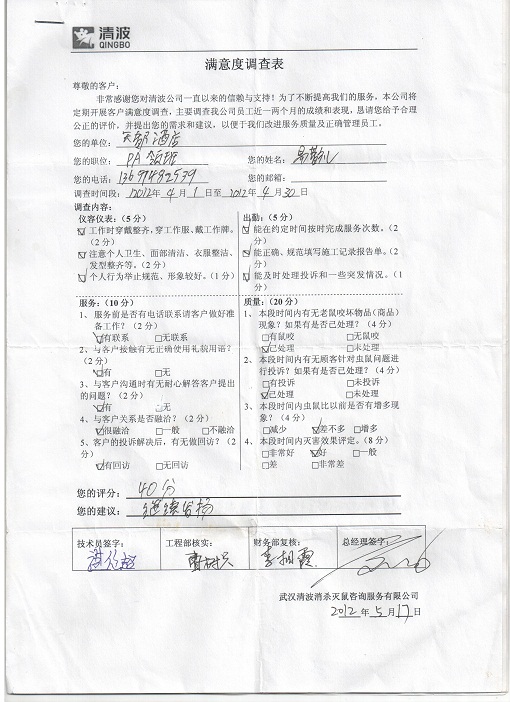 清波
QINGBO
满意度调查表
尊敬的客户：
非常感谢您对清波公司一直以来的信赖与支持！为了不断提高我们的服务，本公司将
定期开展客户满意度调查，主要调查我公司员工近一两个月的成绩和表现，恳请您给予合理
公正的评价，并提出您的需求和建议，以便于我们改进服务质量及正确管理员工。
您的单位：天都酒店
您的职位：PA 领班 您的姓名：
您的电话：13697482539 您的邮箱：
调查时间段：2012年 4 月 1 日至 2012年 4 月 30 日
调查内容：
仪容仪表：（5 分） 出勤：（5 分）
☑工作时穿戴整齐，穿工作服、戴工作牌。 ☑能在约定时间按时完成服务次数。（2
（2 分） 分）
☑注意个人卫生、面部清洁、衣服整洁、 ☑能正确、规范填写施工记录报告单。（2
发型整齐等。（2 分） 分）
☑个人行为举止规范、形象较好。（1 分） ☑能及时处理投诉和一些突发情况。（1
分）
服务：（10 分） 质量：（20 分）
1、服务前是否有电话联系请客户做好准 1、本段时间内有无老鼠咬坏物品（商品）
备工作？（2 分） 现象？如果有是否已处理？（4 分）
☑有联系 □无联系 □有鼠咬 □无鼠咬
2、与客户接触有无正确使用礼貌用语？ ☑已处理 □未处理
（2 分） 2、本段时间内有无顾客针对虫鼠问题进
☑有 □无 行投诉？如果有是否已处理？（4 分）
3、与客户沟通时有无耐心解答客户提出 □有投诉 □未投诉
的问题？（2 分） ☑已处理 □未处理
☑有 □无 3、本段时间内虫鼠比以前是否有增多现
4、与客户关系是否融洽？（2 分） 象？（4 分）
☑很融洽 □一般 □不融洽 □减少 ☑差不多 □增多
5、客户的投诉解决后，有无做回访？（2 4、本段时间内灭害效果评定。（8 分）
分） □非常好 ☑好 □一般
☑有回访 □无回访 □差 □非常差
您的评分：40分
您的建议：继续发扬
技术员签字： 工程部核实： 财务部复核： 总经理签字：
李相霞
武汉清波消杀灭鼠咨询服务有限公司
2012 年 5 月 17 日